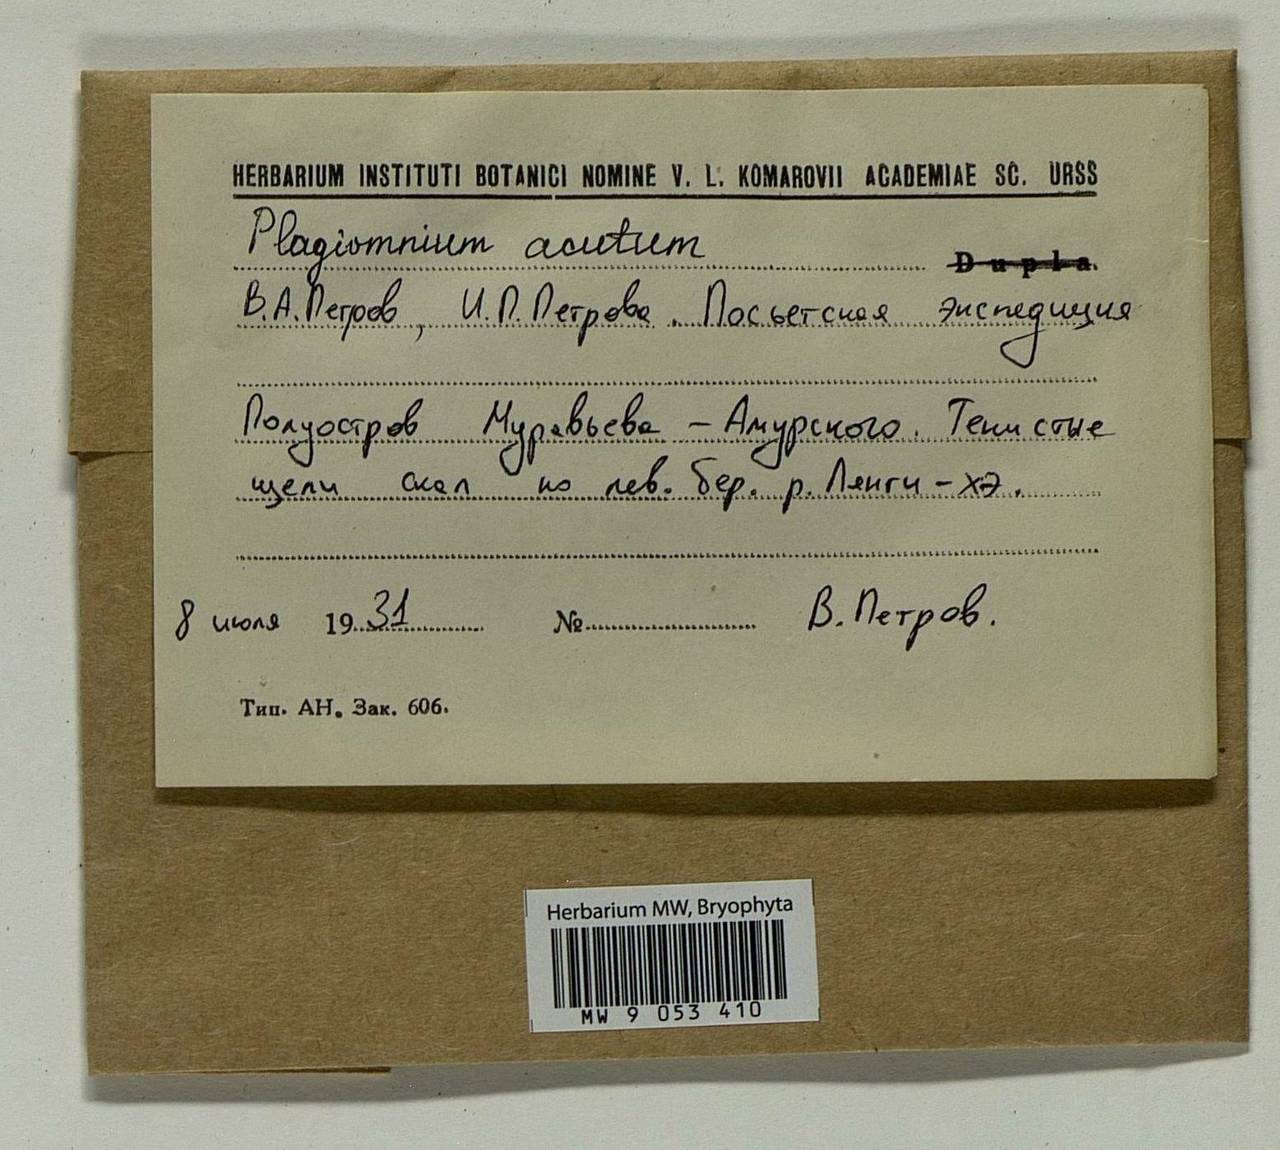 HERBARIUM INSTITUTI BOTANICI NOMINE V. L. KOMAROVII ACADEMIAE SC. URSS
Plagiomnium acutum
Dupla.
В.А.Петров, И.П.Петрова. Посьетская экспедиция
Полуостров Муравьева-Амурского. Тенистые
щели скал по лев. бер. р. Лянги-хэ.
8 июля 1931 № В. Петров.
Тип. АН. Зак. 606.
Herbarium MW, Bryophyta
MW 9 053 410